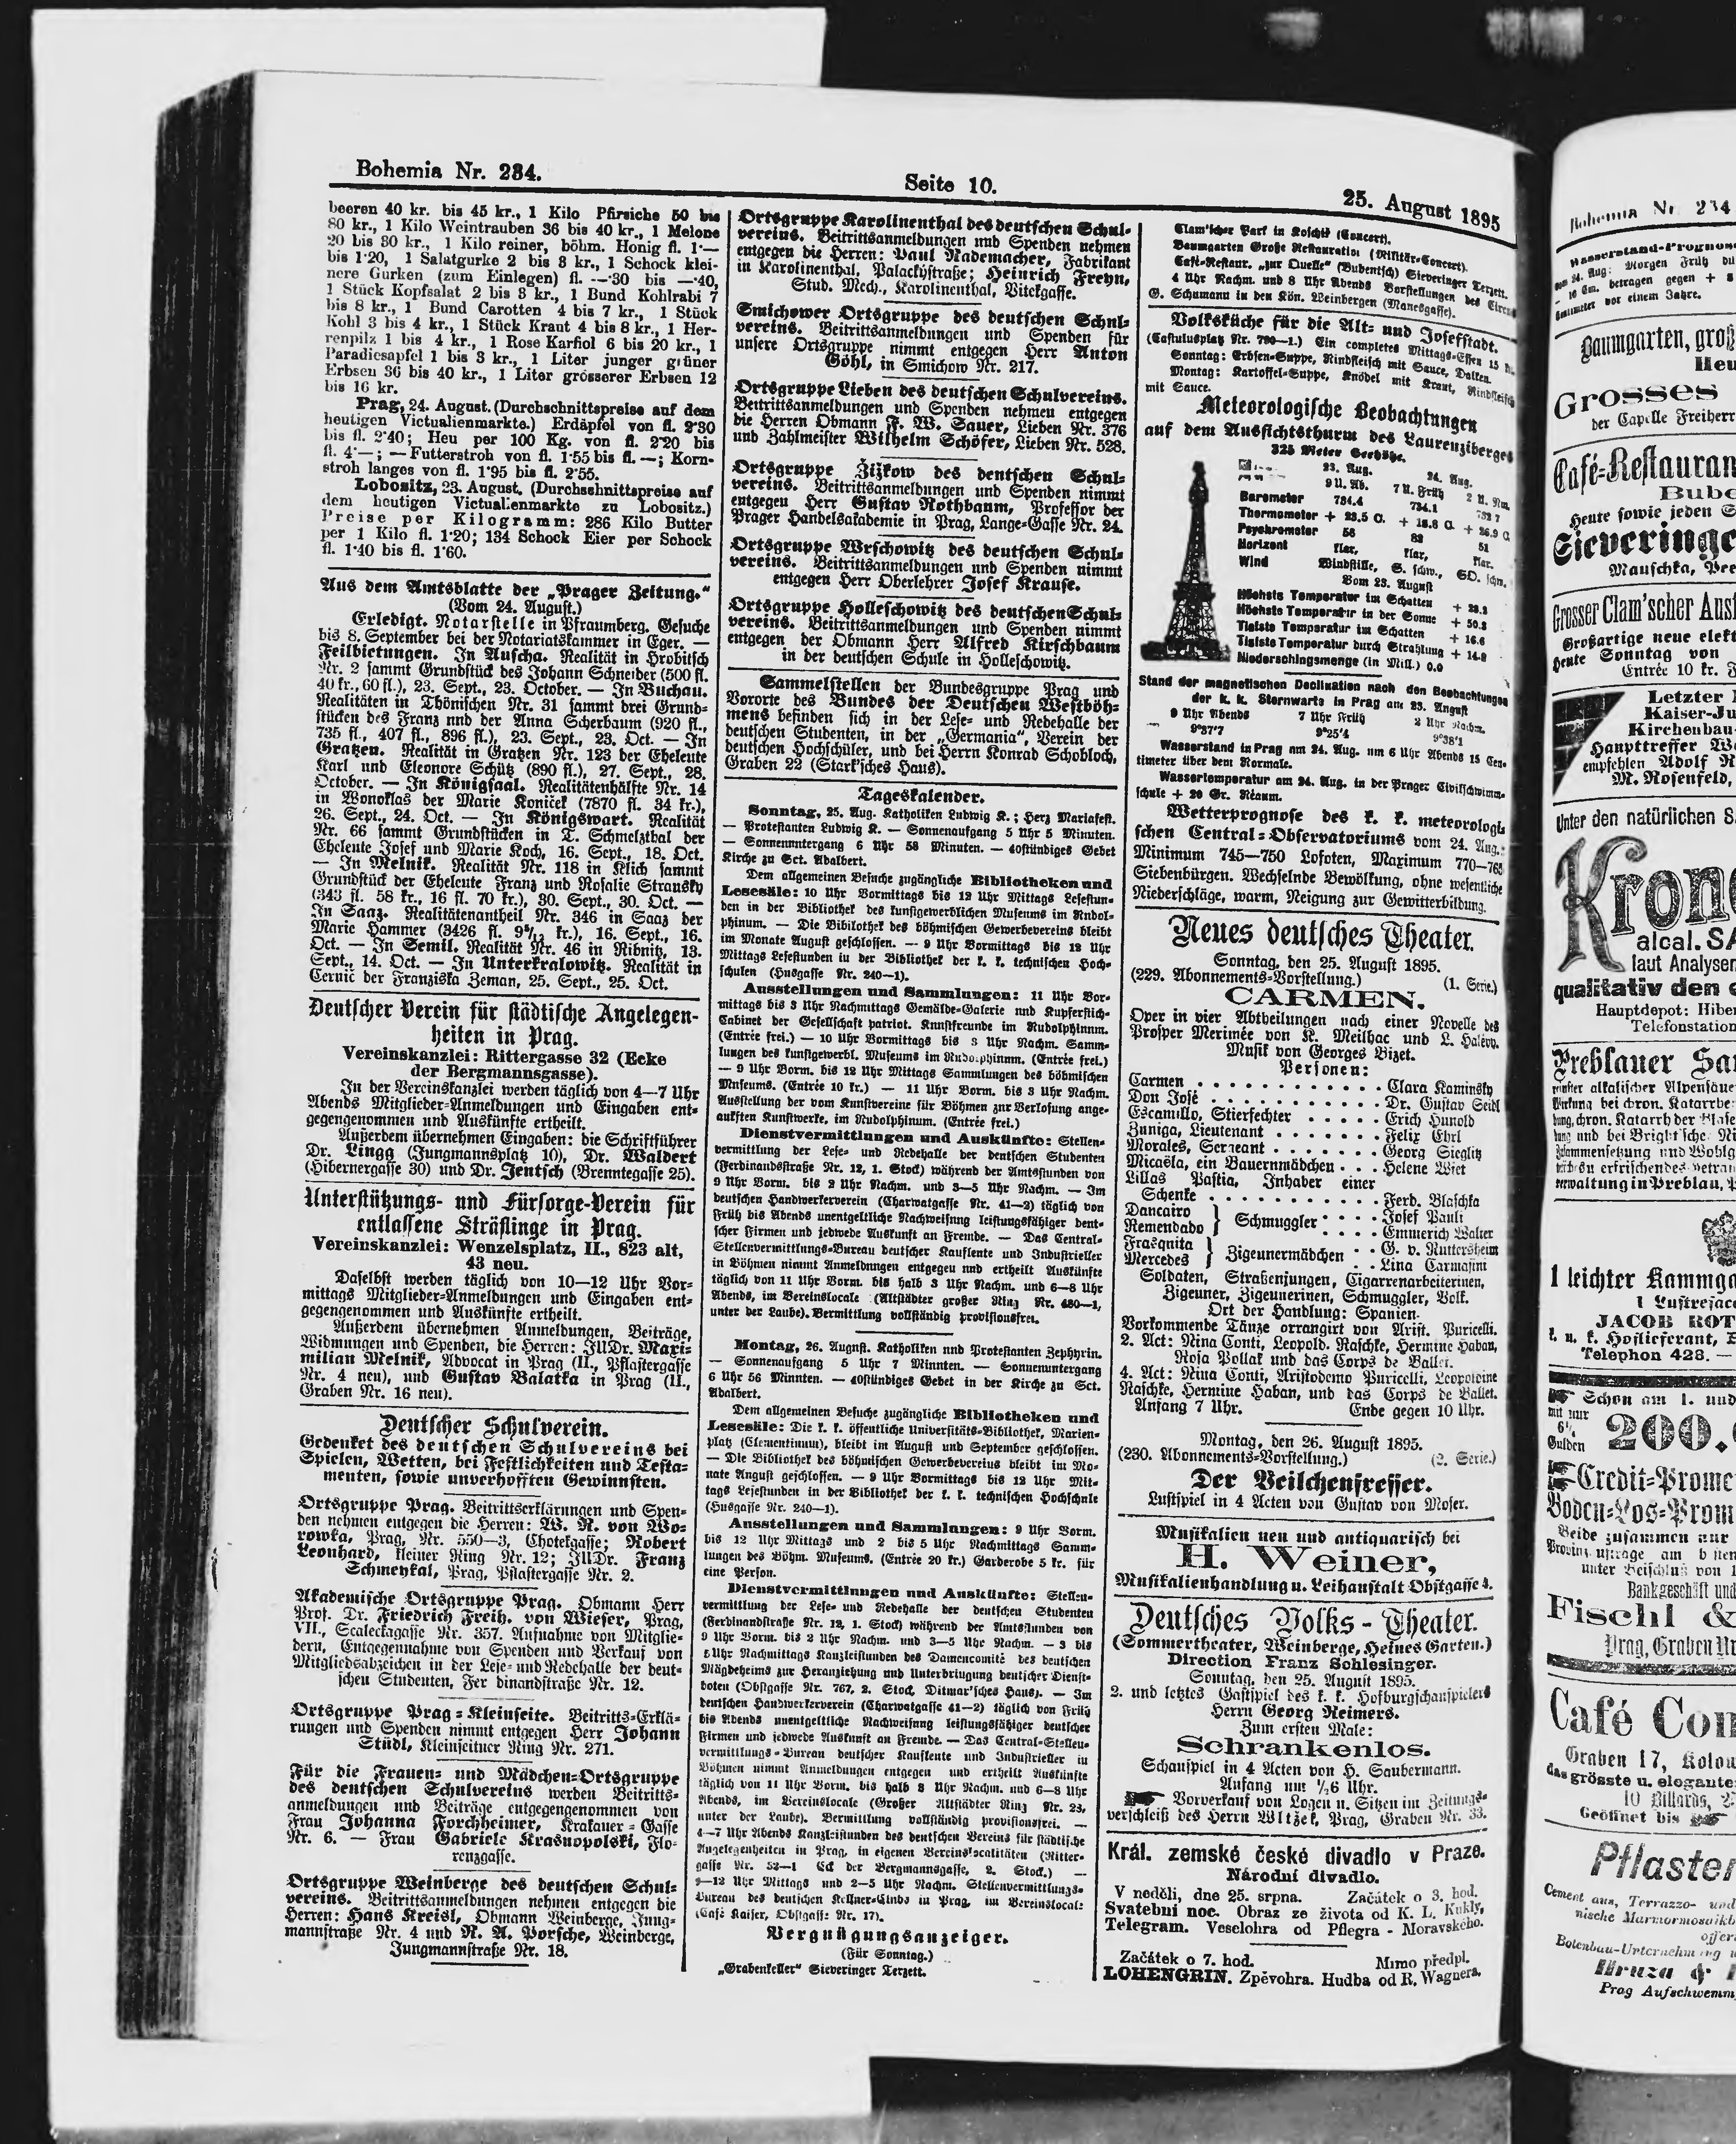 Bohemia Nr. 234.
Seite 10.
25. August 1895
beeren 40 kr. bis 45 kr., 1 Kilo Pfirsiche 50 bis
80 kr., 1 Kilo Weintrauben 36 bis 40 kr., 1 Melone
20 bis 30 kr., 1 Kilo reiner, böhm. Honig fl. 1·—
bis 1·20, 1 Salatgurke 2 bis 3 kr., 1 Schock klei-
nere Gurken (zum Einlegen) fl. —·30 bis —·40,
1 Stück Kopfsalat 2 bis 3 kr., 1 Bund Kohlrabi 7
bis 8 kr., 1 Bund Carotten 4 bis 7 kr., 1 Stück
Kohl 3 bis 4 kr., 1 Stück Kraut 4 bis 8 kr., 1 Her-
renpilz 1 bis 4 kr., 1 Rose Karfiol 6 bis 20 kr., 1
Paradiesapfel 1 bis 3 kr., 1 Liter junger grüner
Erbsen 36 bis 40 kr., 1 Liter grösserer Erbsen 12
bis 16 kr.
Prag, 24. August. (Durchschnittspreise auf dem
heutigen Victualienmarkte.) Erdäpfel von fl. 2·30
bis fl. 2·40; Heu per 100 Kg. von fl. 2·20 bis
fl. 4·—; — Futterstroh von fl. 1·55 bis fl. —; Korn-
stroh langes von fl. 1·95 bis fl. 2·55.
Lobositz, 23. August. (Durchschnittspreise auf
dem heutigen Victualienmarkte zu Lobositz.)
Preise per Kilogramm: 286 Kilo Butter
per 1 Kilo fl. 1·20; 134 Schock Eier per Schock
fl. 1·40 bis fl. 1·60.
Aus dem Amtsblatte der „Prager Zeitung.“
(Vom 24. August.)
Erledigt. Notarstelle in Pfraumberg. Gesuche
bis 8. September bei der Notariatskammer in Eger. —
Feilbietungen. In Auscha. Realität in Hrobitsch
Nr. 2 sammt Grundstück des Johann Schneider (500 fl.
40 kr., 60 fl.), 23. Sept., 23. October. — In Buchau.
Realitäten in Thönischen Nr. 31 sammt drei Grund-
stücken des Franz und der Anna Scherbaum (920 fl.,
735 fl., 407 fl., 896 fl.), 23. Sept., 23. Oct. — In
Gratzen. Realität in Gratzen Nr. 123 der Eheleute
Karl und Eleonore Schütz (890 fl.), 27. Sept., 28.
October. — In Königsaal. Realitätenhälfte Nr. 14
in Wonoklas der Marie Koniček (7870 fl. 34 kr.),
26. Sept., 24. Oct. — In Königswart. Realität
Nr. 66 sammt Grundstücken in T. Schmelzthal der
Eheleute Josef und Marie Koch, 16. Sept., 18. Oct.
— In Melnik. Realität Nr. 118 in Klich sammt
Grundstück der Eheleute Franz und Rosalie Stransky
(343 fl. 58 kr., 16 fl. 70 kr.), 30. Sept., 30. Oct. —
In Saaz. Realitätenantheil Nr. 346 in Saaz der
Marie Hammer (3426 fl. kr.), 16. Sept., 16.
Oct. — In Semil. Realität Nr. 46 in Ribnitz, 13.
Sept., 14. Oct. — In Unterkralowitz. Realität in
Cernic der Franziska Zeman, 25. Sept., 25. Oct.
Deutscher Verein für städtische Angelegen-
heiten in Prag.
Vereinskanzlei: Rittergasse 32 (Ecke
der Bergmannsgasse).
In der Vereinskanzlei werden täglich von 4—7 Uhr
Abends Mitglieder-Anmeldungen und Eingaben ent-
gegengenommen und Auskünfte ertheilt.
Außerdem übernehmen Eingaben: die Schriftführer
Dr. Lingg (Jungmannsplatz 10), Dr. Waldert
(Hibernergasse 30) und Dr. Jentsch (Brenntegasse 25).
Unterstützungs- und Fürsorge-Verein für
entlassene Sträflinge in Prag.
Vereinskanzlei: Wenzelsplatz, II., 823 alt,
43 neu.
Daselbst werden täglich von 10—12 Uhr Vor-
mittags Mitglieder-Anmeldungen und Eingaben ent-
gegengenommen und Auskünfte ertheilt.
Außerdem übernehmen Anmeldungen, Beiträge,
Widmungen und Spenden, die Herren: JUDr. Maxi-
milian Melnik, Advocat in Prag (II., Pflastergasse
Nr. 4 neu), und Gustav Balatka in Prag (II.,
Graben Nr. 16 neu).
Deutscher Schulverein.
Gedenket des deutschen Schulvereins bei
Spielen, Wetten, bei Festlichkeiten und Testa-
menten, sowie unverhofften Gewinnsten.
Ortsgruppe Prag. Beitrittserklärungen und Spen-
den nehmen entgegen die Herren: W. R. von Wo-
rowka, Prag, Nr. 550—3, Chotekgasse; Robert
Leonhard, kleiner Ring Nr. 12; JUDr. Franz
Schmeykal, Prag, Pflastergasse Nr. 2.
Akademische Ortsgruppe Prag. Obmann Herr
Prof. Dr. Friedrich Freih. von Wieser, Prag,
VII., Scaleckagasse Nr. 357. Aufnahme von Mitglie-
dern, Entgegennahme von Spenden und Verkauf von
Mitgliedsabzeichen in der Lese- und Redehalle der deut-
schen Studenten, Fer dinandstraße Nr. 12.
Ortsgruppe Prag-Kleinseite. Beitritts-Erklä-
rungen und Spenden nimmt entgegen Herr Johann
Stüdl, Kleinseitner Ring Nr. 271.
Für die Frauen- und Mädchen-Ortsgruppe
des deutschen Schulvereins werden Beitritts-
anmeldungen und Beiträge entgegengenommen von
Frau Johanna Forchheimer, Krakauer-Gasse
Nr. 6. — Frau Gabriele Krasnopolski, Flo-
renzgasse.
Ortsgruppe Weinberge des deutschen Schul-
vereins. Beitrittsanmeldungen nehmen entgegen die
Herren: Hans Kreisl, Obmann Weinberge, Jung-
mannstraße Nr. 4 und R. A. Porsche, Weinberge,
Jungmannstraße Nr. 18.
Ortsgruppe Karolinenthal des deutschen Schul-
vereins. Beitrittsanmeldungen und Spenden nehmen
entgegen die Herren: Paul Rademacher, Fabrikant
in Karolinenthal, Palackýstraße; Heinrich Freyn,
Stud. Med., Karolinenthal, Vitekgasse.
Smichower Ortsgruppe des deutschen Schul-
vereins. Beitrittsanmeldungen und Spenden für
unsere Ortsgruppe nimmt entgegen Herr Anton
Göhl, in Smichow Nr. 217.
Ortsgruppe Lieben des deutschen Schulvereins.
Beitrittsanmeldungen und Spenden nehmen entgegen
die Herren Obmann F. W. Sauer, Lieben Nr. 376
und Zahlmeister Wilhelm Schöfer, Lieben Nr. 528.
Ortsgruppe Žižkow des deutschen Schul-
vereins. Beitrittsanmeldungen und Spenden nimmt
entgegen Herr Gustav Rothbaum, Professor der
Prager Handelsakademie in Prag, Lange-Gasse Nr. 24.
Ortsgruppe Wrschowitz des deutschen Schul-
vereins. Beitrittsanmeldungen und Spenden nimmt
entgegen Herr Oberlehrer Josef Krause.
Ortsgruppe Holleschowitz des deutschen Schul-
vereins. Beitrittsanmeldungen und Spenden nimmt
entgegen der Obmann Herr Alfred Kirschbaum
in der deutschen Schule in Holleschowitz.
Sammelstellen der Bundesgruppe Prag und
Vororte des Bundes der Deutschen Westböh-
mens befinden sich in der Lese- und Redehalle der
deutschen Studenten, in der „Germania“, Verein der
deutschen Hochschüler, und bei Herrn Konrad Schobloch,
Graben 22 (Stark'sches Haus).
Tageskalender.
Sonntag, 25. Aug. Katholiken Ludwig K.; Herz Mariafest.
— Protestanten Ludwig K. — Sonnenaufgang 5 Uhr 5 Minuten.
— Sonnenuntergang 6 Uhr 58 Minuten. — 40stündiges Gebet
Kirche zu Sct. Adalbert.
Dem allgemeinen Besuche zugängliche Bibliotheken und
Lesesäle: 10 Uhr Vormittags bis 12 Uhr Mittags Lesestun-
den in der Bibliothek des kunstgewerblichen Museums im Rudol-
phinum. — Die Bibilothek des böhmischen Gewerbevereins bleibt
im Monate August geschlossen. — 9 Uhr Vormittags bis 12 Uhr
Mittags Lesestunden in der Bibliothek der k. k. technischen Hoch-
schulen (Husgasse Nr. 240—1).
Ausstellungen und Sammlungen: 11 Uhr Vor-
mittags bis 3 Uhr Nachmittags Gemälde-Galerie und Kupferstich-
Cabinet der Gesellschaft patriot. Kunstfreunde im Rudolphinum.
(Entrée frei.) — 10 Uhr Vormittags bis 3 Uhr Nachm. Samm-
lungen des kunstgewerbl. Museums im Rudolphinum. (Entrée frei.)
— 9 Uhr Vorm. bis 12 Uhr Mittags Sammlungen des böhmischen
Museums. (Entrée 10 kr.) — 11 Uhr Vorm. bis 3 Uhr Nachm.
Ausstellung der vom Kunstvereine für Böhmen zur Verlosung ange-
kauften Kunstwerke, im Rudolphinum. (Entrée frei.)
Dienstvermittlungen und Auskünfte: Stellen-
vermittlung der Lese- und Redehalle der deutschen Studenten
(Ferdinandstraße Nr. 12, 1. Stock) während der Amtsstunden von
9 Uhr Vorm. bis 2 Uhr Nachm. und 3—5 Uhr Nachm. — Im
deutschen Handwerkerverein (Charwatgasse Nr. 41—2) täglich von
Früh bis Abends unentgeltliche Nachweisung leistungsfähiger deut-
scher Firmen und jedwede Auskunft an Fremde. — Das Central-
Stellenvermittlungs-Bureau deutscher Kaufleute und Industrieller
in Böhmen nimmt Anmeldungen entgegen und ertheilt Auskünfte
täglich von 11 Uhr Vorm. bis halb 3 Uhr Nachm. und 6—8 Uhr
Abends, im Vereinslocale (Altstädter großer Ring Nr. 480—1,
unter der Laube). Vermittlung vollständig provisionsfrei.
Montag, 26. August. Katholiken und Protestanten Zephyrin.
— Sonnenaufgang 5 Uhr 7 Minuten. — Sonnenuntergang
6 Uhr 56 Minuten. — 40stündiges Gebet in der Kirche zu Sct.
Adalbert.
Dem allgemeinen Besuche zugängliche Bibliotheken und
Lesesäle: Die k. k. öffentliche Universitäts-Bibliothek, Marien-
platz (Clementinum), bleibt im August und September geschlossen.
— Die Bibliothek des böhmischen Gewerbevereins bleibt im Mo-
nate August geschlossen. — 9 Uhr Vormittags bis 12 Uhr Mit-
tags Lesestunden in der Bibliothek der k. k. technischen Hochschule
(Husgasse Nr. 240—1).
Ausstellungen und Sammlungen: 9 Uhr Vorm.
bis 12 Uhr Mittags und 2 bis 5 Uhr Nachmittags Samm-
lungen des Böhm. Museums. (Entrée 20 kr.) Garderobe 5 kr. für
eine Person.
Dienstvermittlungen und Auskünfte: Stellen-
vermittlung der Lese- und Redehalle der deutschen Studenten
(Ferdinandstraße Nr. 12, 1. Stock) während der Amtsstunden von
9 Uhr Vorm. bis 2 Uhr Nachm. und 3—5 Uhr Nachm. — 3 bis
5 Uhr Nachmittags Kanzleistunden des Damencomité des deutschen
Mägdeheims zur Heranziehung und Unterbringung deutscher Dienst-
boten (Obstgasse Nr. 767, 2. Stock, Ditmar'sches Haus). — Im
deutschen Handwerkerverein (Charwatgasse 41—2) täglich von Früh
bis Abends unentgeltliche Nachweisung leistungsfähiger deutscher
Firmen und jedwede Auskunft an Fremde. — Das Central-Stellen-
vermittlungs-Bureau deutscher Kaufleute und Industrieller in
Böhmen nimmt Anmeldungen entgegen und ertheilt Auskünfte
täglich von 11 Uhr Vorm. bis halb 3 Uhr Nachm. und 6—8 Uhr
Abends, im Vereinslocale (Großer Altstädter Ring Nr. 23,
unter der Laube). Vermittlung vollständig provisionsfrei. —
4—7 Uhr Abends Kanzleistunden des deutschen Vereins für städtische
Angelegenheiten in Prag, in eigenen Vereinslocalitäten (Ritter-
gasse Nr. 52—1 Eck der Bergmannsgasse, 2. Stock.) —
9—12 Uhr Mittags und 2—5 Uhr Nachm. Stellenvermittlungs-
Bureau des deutschen Kellner-Clubs in Prag, im Vereinslocale
(Café Kaiser, Obstgasse Nr. 17).
Vergnügungsanzeiger.
(Für Sonntag.)
„Grabenkeller“ Sieveringer Terzett.
Clam'scher Park in Koschiř (Concert).
Baumgarten Große Restauration (Militär-Concert).
Café-Restaur. „zur Quelle“ (Bubentsch) Sieveringer Terzett.
4 Uhr Nachm. und 8 Uhr Abends Vorstellungen des Circus
G. Schumann in den Kön. Weinbergen (Manesgasse).
Volksküche für die Alt- und Josefstadt.
(Castulusplatz Nr. 790—1.) Ein completes Mittags-Essen 15
Sonntag: Erbsen-Suppe, Rindfleisch mit Sauce, Dalken.
Montag: Kartoffel-Suppe, Knödel mit Kraut, Rindfleisch
mit Sauce.
Meteorologische Beobachtungen
auf dem Aussichtsthurm des Laurenziberges
325 Meter Seehöhe.
23. Aug. 24. Aug.
9 U. Ab. 7 U. Früh 2 U. Nm.
Barometer 734.4 734.1 732 7
Thermometer + 23.5 C. + 18.8 C. + 26.9 C
Psychrometer 58 82 51
Horizont klar, klar, klar.
Wind Windstille, S. schw., SO. schw.
Vom 23. August
Höchste Temperatur im Schatten + 28.2
Höchste Temperatur in der Sonne + 50.2
Tiefste Temperatur im Schatten + 16.6
Tiefste Temperatur durch Strahlung + 14.9
Niederschlagsmenge (in Mill.) 0.0
Stand der magnetischen Declination nach den Beobachtungen
der k. k. Sternwarte in Prag am 23. August
9 Uhr Abends 7 Uhr Früh 2 Uhr Nachm.
9°37'7 9°25'4 9°38'1
Wasserstand in Prag am 24. Aug. um 6 Uhr Abends 15 Cen-
timeter über dem Normale.
Wassertemperatur am 24. Aug. in der Prager Civilschwimm-
schule + 20 Gr. Réaum.
Wetterprognose des k. k. meteorologi-
schen Central-Observatoriums vom 24. Aug.:
Minimum 745—750 Lofoten, Maximum 770—765
Siebenbürgen. Wechselnde Bewölkung, ohne wesentliche
Niederschläge, warm, Neigung zur Gewitterbildung.
Neues deutsches Theater.
Sonntag, den 25. August 1895.
(229. Abonnements-Vorstellung.) (1. Serie.)
CARMEN.
Oper in vier Abtheilungen nach einer Novelle des
Prosper Merimée von K. Meilhac und L. Halévy.
Musik von Georges Bizet.
Personen:
Carmen . . . Clara Kaminsky
Don José . . . Dr. Gustav Seidl
Escamillo, Stierfechter . . . Erich Hunold
Zuniga, Lieutenant . . . Felix Ehrl
Morales, Sergeant . . . Georg Sieglitz
Micaëla, ein Bauernmädchen . . . Helene Wiet
Lillas Pastia, Inhaber einer
Schenke . . . Ferd. Blaschka
Dancairo } Schmuggler . . . Josef Pauli
Remendado . . . Emmerich Walter
Frasquita } Zigeunermädchen . . G. v. Ruttersheim
Mercedes . . Lina Carmasini
Soldaten, Straßenjungen, Cigarrenarbeiterinen,
Zigeuner, Zigeunerinen, Schmuggler, Volk.
Ort der Handlung: Spanien.
Vorkommende Tänze arrangirt von Arist. Puricelli.
2. Act: Nina Conti, Leopold. Raschke, Hermine Haban,
Rosa Pollak und das Corps de Ballet.
4. Act: Nina Conti, Aristodemo Puricelli, Leopoldine
Raschke, Hermine Haban, und das Corps de Ballet.
Anfang 7 Uhr. Ende gegen 10 Uhr.
Montag, den 26. August 1895.
(230. Abonnements-Vorstellung.) (2. Serie.)
Der Veilchenfresser.
Lustspiel in 4 Acten von Gustav von Moser.
Musikalien neu und antiquarisch bei
H. Weiner,
Musikalienhandlung u. Leihanstalt Obstgasse 4.
Deutsches Volks-Theater.
(Sommertheater, Weinberge, Heines Garten.)
Direction Franz Schlesinger.
Sonntag, den 25. August 1895.
2. und letztes Gastspiel des k. k. Hofburgschauspielers
Herrn Georg Reimers.
Zum ersten Male:
Schrankenlos.
Schauspiel in 4 Acten von H. Saubermann.
Anfang um ½6 Uhr.
Vorverkauf von Logen u. Sitzen im Zeitungs-
verschleiß des Herrn Wltzek, Prag, Graben Nr. 33.
Král. zemské české divadlo v Praze.
Národní divadlo.
V neděli, dne 25. srpna. Začátek o 3. hod.
Svatební noc. Obraz ze života od K. L. Kukly.
Telegram. Veselohra od Pflegra-Moravského.
Začátek o 7. hod. Mimo předpl.
LOHENGRIN. Zpěvohra. Hudba od R. Wagnera.
Bohemia Nr. 234
Wasserstand-Prognose
24. Aug: Morgen Früh du
betragen gegen +
vor einem Jahre.
Baumgarten, groß
Heu
Grosses
der Capelle Freiherr
Café-Restauran
Bube
Heute sowie jeden S
Sieveringe
Mauschka,
Grosser Clam'scher Aus
Großartige neue elek
Heute Sonntag von
Entrée 10 kr.
Letzter
Kaiser-Ju
Kirchenbau
Haupttreffer
empfehlen Adolf
M. Rosenfeld,
Unter den natürlichen S
Krond
alcal. SA
laut Analysen
qualitativ den
Hauptdepot: Hiber
Telefonstation
Preblauer Sa
alkalischer Alpensäue
Wirkung bei chron. Katarrhe
chron. Katarrh der Blase
und bei Bright'sche Ni
Zusammensetzung und Wohlg
erfrischendes Getran
verwaltung in Preblau,
1 leichter Kammga
1 Lustrejac
JACOB ROT
k. u. k. Hoflieferant,
Telephon 428. —
Schon am 1. und
mit nur
6½
Gulden
200.
Credit-Prome
Boden-Los-Prom
Beide zusammen nur
Bankgeschäft und
Fischl &
Prag, Graben Nr
Café Con
Graben 17, Kolow
das grösste u. elegante
10 Billards,
Geöffnet bis
Pflaster
Cement aus, Terrazzo- und
nische Marmormosaikb
offer
Betonbau-Unternehmung
Hruza &
Prag Aufschwemm